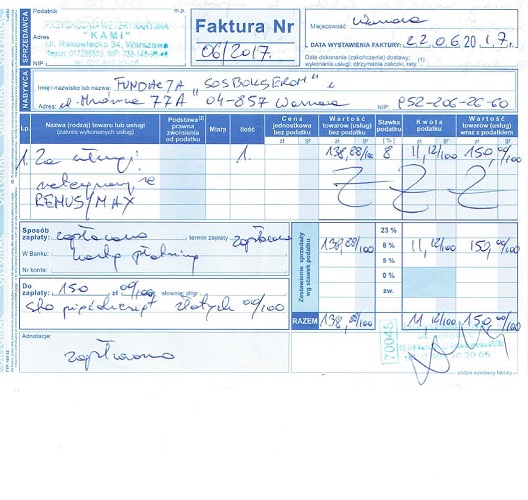 SPRZEDAWCA
Podatnik
m.p.
PRZYCHODNIA WETERYNARYJNA
"KAMI"
Adres
Ul. Rakowiecka 34, Warszawa
Faktura Nr
06/2017.
Miejscowość:
DATA WYSTAWIENIA FAKTURY: 22.06.2017.
Data dokonania (zakończenia) dostawy,
wykonania usługi; otrzymania zaliczki, raty (1)
NABYWCA
Imię i nazwisko lub nazwa: FUNDACJA "SOS BOKSEROM"
Adres: ul. Mrówcza 77A 04-857 Warszawa
NIP: 952-206-26-60
Lp.
Nazwa (rodzaj) towaru lub usługi
(zakres wykonanych usług)
Podstawa (2)
prawna
zwolnienia
od podatku
Miara
Ilość
Cena
jednostkowa
bez podatku
Wartość
towaru (usługi)
bez podatku
Stawka
podatku
Kwota
podatku
Wartość
towarów (usług)
wraz z podatkiem
zł gr zł gr [%] zł gr zł gr
1. Za usługi 1. 138,88/100 8 11,12/100 150 00/100
REMUS/MAX
Sposób
zapłaty: zapłacono termin zapłaty: zapłacono
W Banku:
Nr konta:
Zestawienie sprzedaży
wg stawek podatku
23 %
138,88/100 8 % 11,12/100 150,00/100
5 %
0 %
zw.
Do
zapłaty 150 zł 00/100 gr słownie: zł/gr
sto pięćdziesiąt złotych 00/100
RAZEM 138,88/100 11,12/100 150 00/100
Adnotacje:
zapłacono
70045
podpis wystawcy faktury